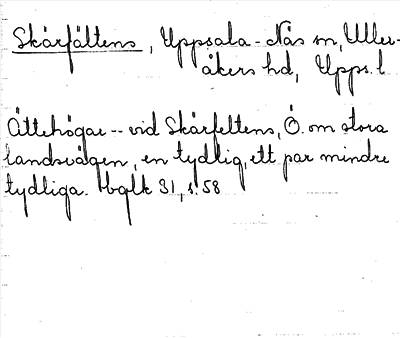 Skärfältens, Uppsala-Näs sn, Uller-
åkers hd, Upps. l
Ättehögar -- vid Skärfeltens, Ö. om stora
landsvägen, en tydlig, ett par mindre
tydliga. bglk 31, s. 58